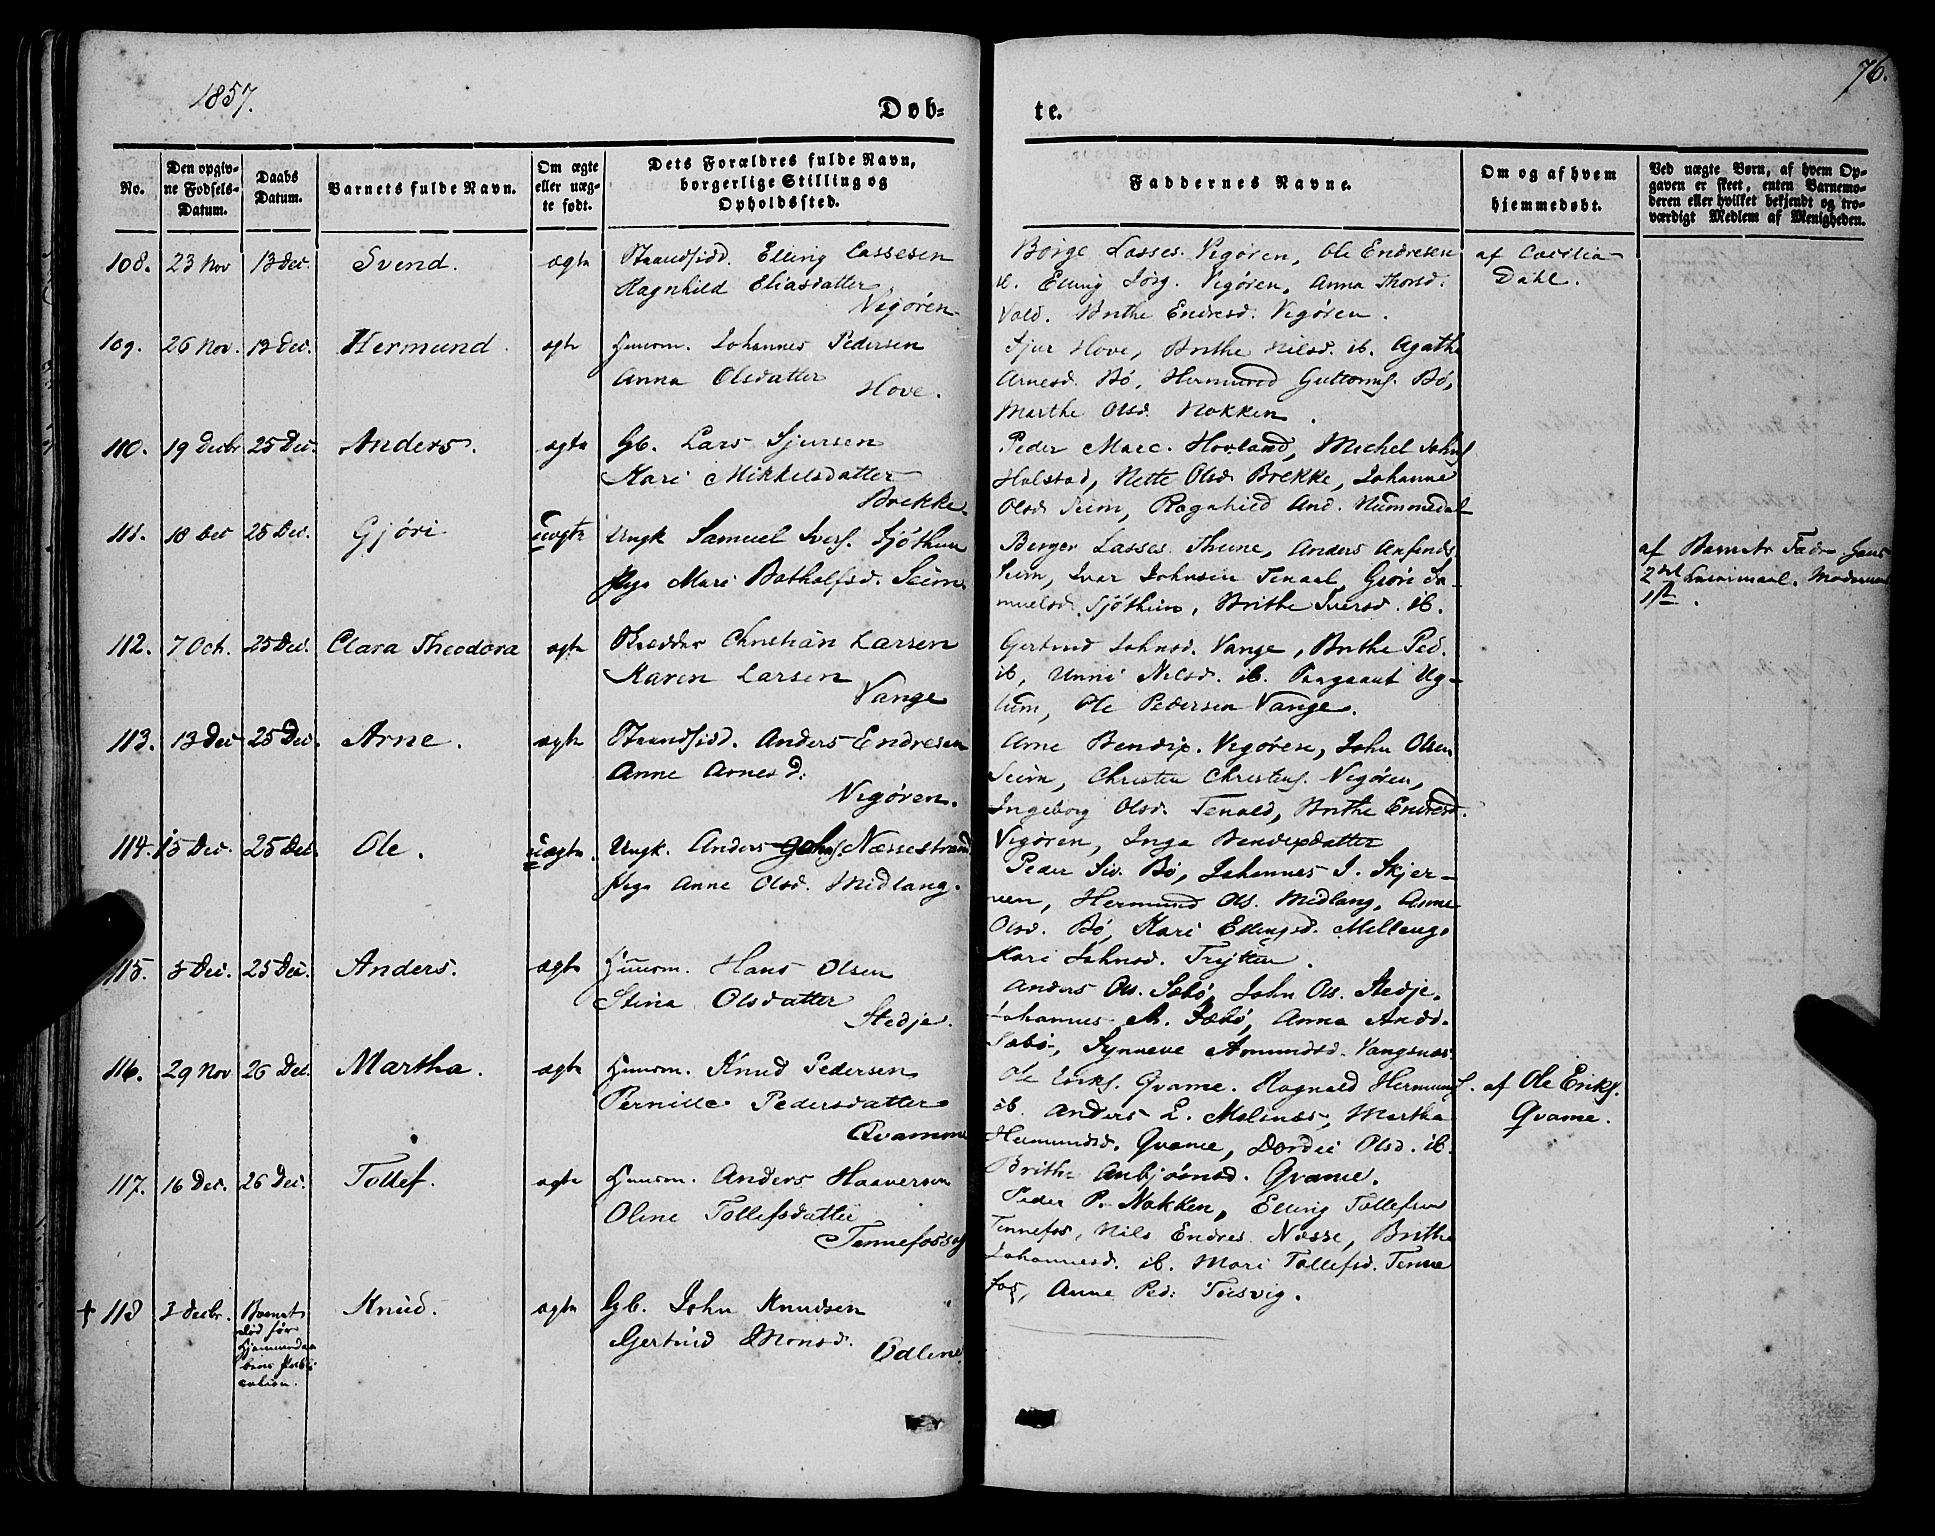 1857.
76.
Døb-
te.
No.
Den opgiv-
ne Fødsels-
Datum.
Daabs
Datum.
Barnets fulde Navn.
Om ægte
eller uæg-
te født.
Dets Forældres fulde Navn,
borgerlige Stilling og
Opholdssted.
Faddernes Navne.
Om og af hvem
hjemmedøbt.
Ved uægte Børn, af hvem Op-
gaven er skeet, enten Barnemo-
deren eller hvilket bekjendt og tro-
værdigt Medlem af Menigheden.
108. 23 Nov 13 Dec. Svend. ægte
Strandsidd. Elling Lassesen
Ragnhild Eliasdatter
Vigøren
Børge Lasses. Vigøren, Ole Endresen
ib. Elling Jørg. Vigøren, Anna Thorsd.
Vold. Brithe Endresd. Vigøren.
af Cæcilia
Dahl.
109. 26 Nov. 13 Dec. Hermund. ægte
Huusm. Johannes Pedersen
Anna Olsdatter
Hove.
Sjur Hove, Brithe Nilsd. ib. Agathe
Arnesd. Bø, Hermund Guttorms. Bø,
Marthe Olsd. Nokken.
110. 19 Decbr 25 Dec. Anders. ægte
Gb. Lars Sjursen
Kari Mikkelsdatter
Brekke.
Peder Marc. Hovland, Michel Johns
Holstad, Nette Olsd Brekke, Johanne
Olsd. Seim, Ragnhild And. Nummedal
111. 18 Dec 25 Dec. Gjøri uægte
Ungk Samuel Ivers. Sjøthun
Pige Mari Botholfsd. Seim
Berger Lasses. Thune, Anders Anfinds
Seim, Ivar Johnsen Tenaal, Gjøri Sa-
muelsd. Sjøthun, Brithe Iversd. ib.
af Barnets Fader hans
2det Leiermaal. Moderens
1ste.
112. 7 Oct. 25 Dec. Clara Theodora ægte
Skrædder Christian Larsen
Karen Larsen
Vange
Gertrud Johnsd. Vange, Brithe Ped.
ib, Unni Nilsd. ib. Ug-
lum, Ole Pedersen Vange.
113. 13 Dec 25 Dec. Arne. ægte
Strandsidd. Anders Endresen
Anne Arnesd:
Vigøren.
Arne Bendix. Vigøren, John Olsen
Seim, Christen Christens. Vigøren,
Ingeborg Olsd. Tenold, Brithe Endresd.
Vigøren, Inga Bendixdatter
114. 15 Dec. 25 Dec. Ole. uægte.
Ungk. Anders Johns. Næssestrand
Pige Anne Olsd. Midlang.
Peder Siv. Bø, Johannes I. Skjer-
veen, Hermund Ols. Midlang, Anne
Olsd. Bø, Kari Ellingsd. Mellange
Kari Johnsd.
115. 5 Dec. 25 Dec. Anders. ægte
Huusm. Hans Olsen
Stina Olsdatter
Stedje.
Anders Ols. Sæbø, John Ols. Stedje,
Johannes A. Sæbø, Anna Andd.
Sæbø, Synneve Amundsd. Vangsnæs
116. 29 Nov 26 Dec. Martha. ægte
Huusm. Knud Pedersen
Pernille Pedersdatter
Qvamme
Ole Eriks. Qvame. Ragnald Hermunds.
ib. Anders L. Melsnæs, Martha
Hermundsd. Qvame, Dordie Olsd. ib.
Brithe Anbjørnsd. Qvame.
af Ole Eriks.
Qvame.
117. 16 Dec. 26 Dec. Tollef. ægte
Huusm. Anders Haaversen
Oline Tollefsdatter
Tennefosso
Peder P. Nokken, Elling Tollefsen
Tennefos, Nils Endres. Næsse, Brithe
Johannesd. ib. Mari Tollefsd. Tenne
fos, Anne Ped: Tusvig.
† 118 3 Decbr. Barnet
død før
Hjemmedaa
bens Publi
cation.
Knud. ægte
Gb. John Knudsen
Gertrud Monsd.
Ødline